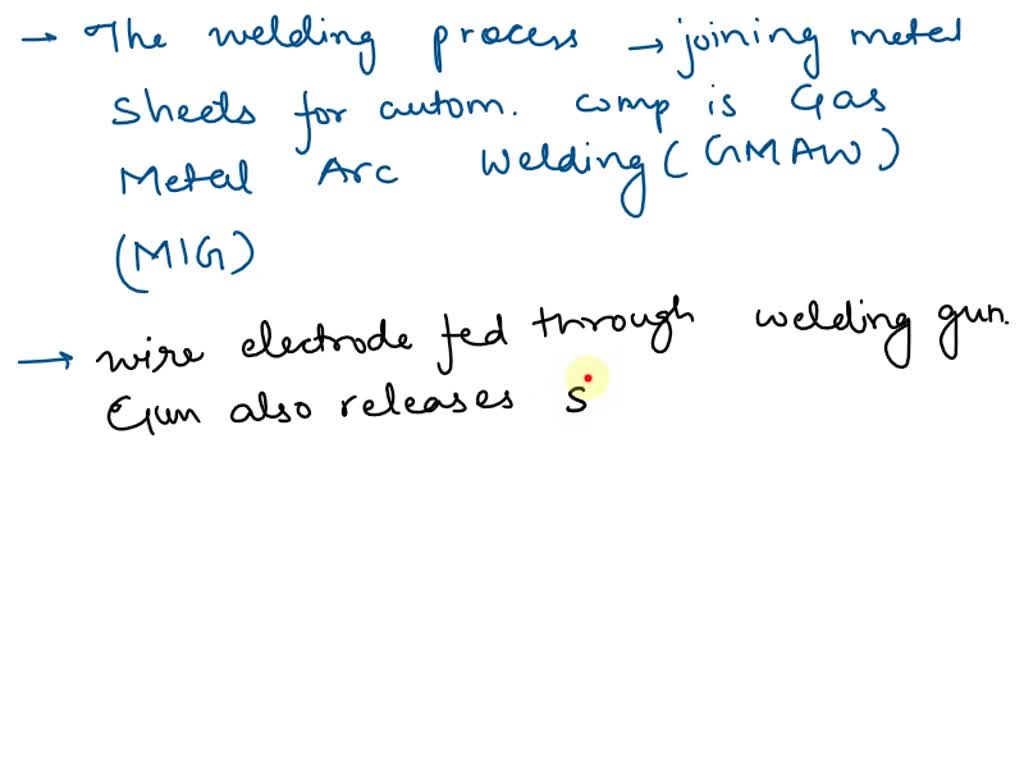 → The welding process → joining metal
sheets for autom. comp is Gas
Metal Arc Welding (GMAW)
(MIG)
→ wire electrode fed through welding gun.
Gun also releases s